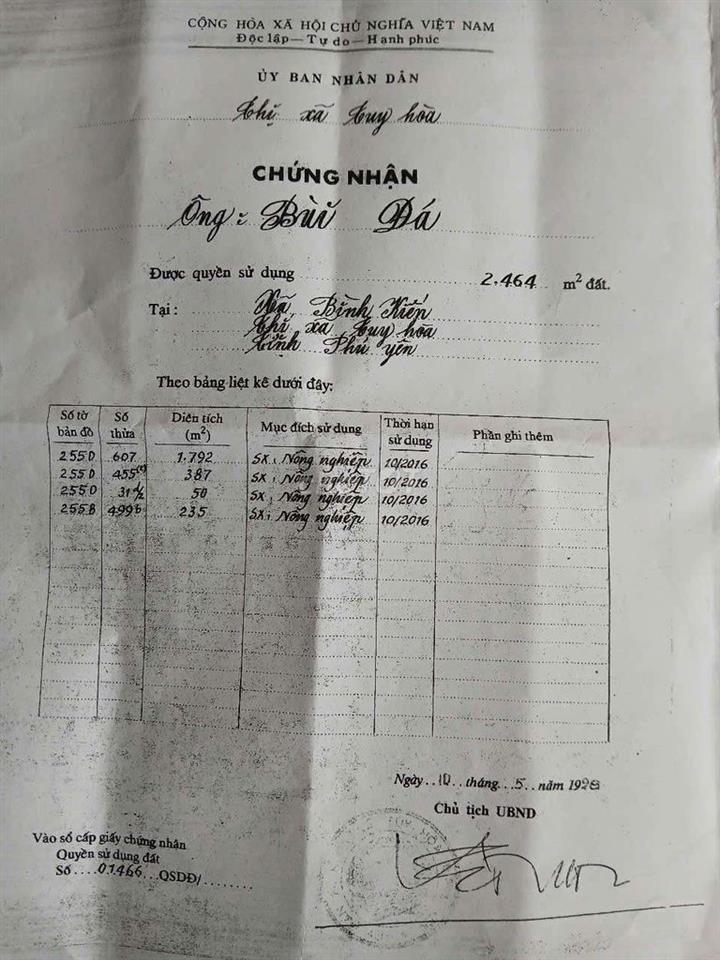 CỘNG HÒA XÃ HỘI CHỦ NGHĨA VIỆT NAM
Độc lập—Tự do—Hạnh phúc
ỦY BAN NHÂN DÂN
Thị xã Tuy hòa
CHỨNG NHẬN
Ông: Bùi Đá
Được quyền sử dụng 2.464 m² đất.
Tại: Xã Bình Kiến
Thị xã Tuy hòa
Tỉnh Phú yên
Theo bảng liệt kê dưới đây:
Số tờ bản đồ Số thửa Diên tích (m²) Mục đích sử dụng Thời hạn sử dụng Phần ghi thêm
255D 607 1.792 SX: Nông nghiệp 10/2016
255D 455(1) 387 SX: Nông nghiệp 10/2016
255D 50 SX: Nông nghiệp 10/2016
255B 499b 235 SX: Nông nghiệp 10/2016
Ngày..10..tháng..5..năm
Chủ tịch UBND
Vào sổ cấp giấy chứng nhân
Quyền sử dụng đất
Số....01466...QSDĐ/........